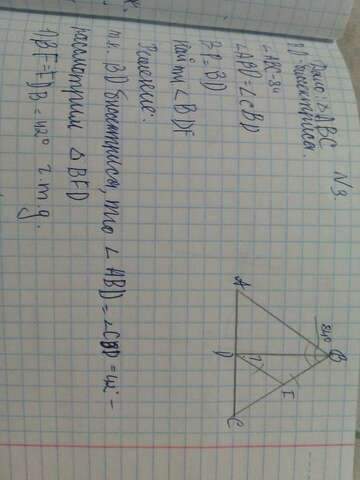 N3
Дано: △ABC
BD - биссектриса.
∠ABC = 84
∠ABD = ∠CBD
BF = BD
Найти ∠BDF
Решение:
т.к. BD биссектриса, то ∠ABD = ∠CBD = 42° -
рассмотрим △BFD
1) BF = B = 42° 2 т.д.
84°
A
B
C
D
F
?